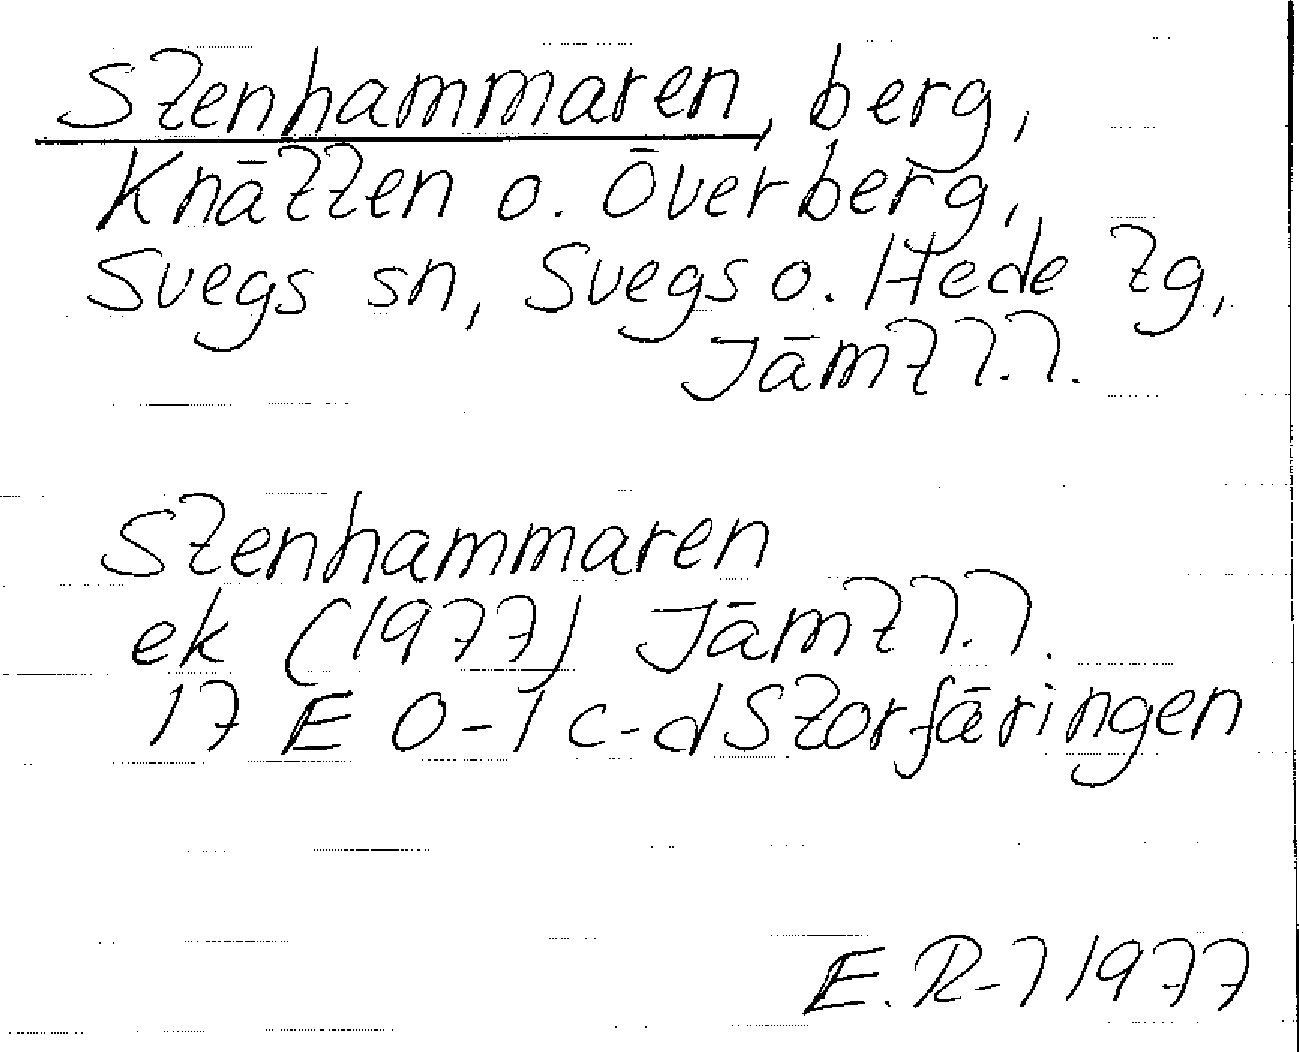 Stenhammaren, berg,
Knätten o. Överberg,
Svegs sn, Svegs o. Hede tg,
Jämtl.l.
Stenhammaren
ek (1977) Jämtl.l.
17 E 0-1 c-d Storfäringen
E.R-l 1977